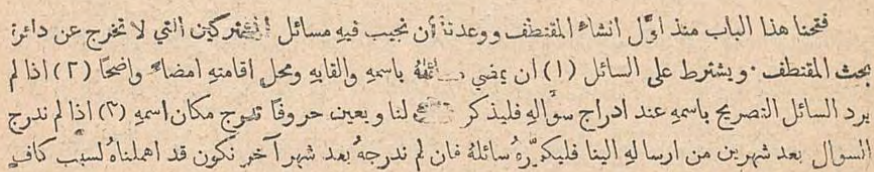 فتحنا هذا الباب منذ اوَّل انشاء المقتطف ووعدنا أن نجيب فيهِ مسائل المشتركين التي لا تخرج عن دائرة
بحث المقتطف · ويشترط على السائل (١) ان يمضي مسائلهُ باسمهِ والقابهِ ومحل اقامتهِ امضاءً واضحًا (٢) اذا لم
يرد السائل التصريح باسمهِ عند ادراج سؤالهِ فليذكر لنا ويعين حروفًا تدرج مكان اسمهِ (٣) اذا لم ندرج
السوال بعد شهرين من ارسالهِ الينا فليكرّرهُ سائلهُ فان لم ندرجهُ بعد شهر آخر نكون قد اهملناهُ لسبب كافٍ